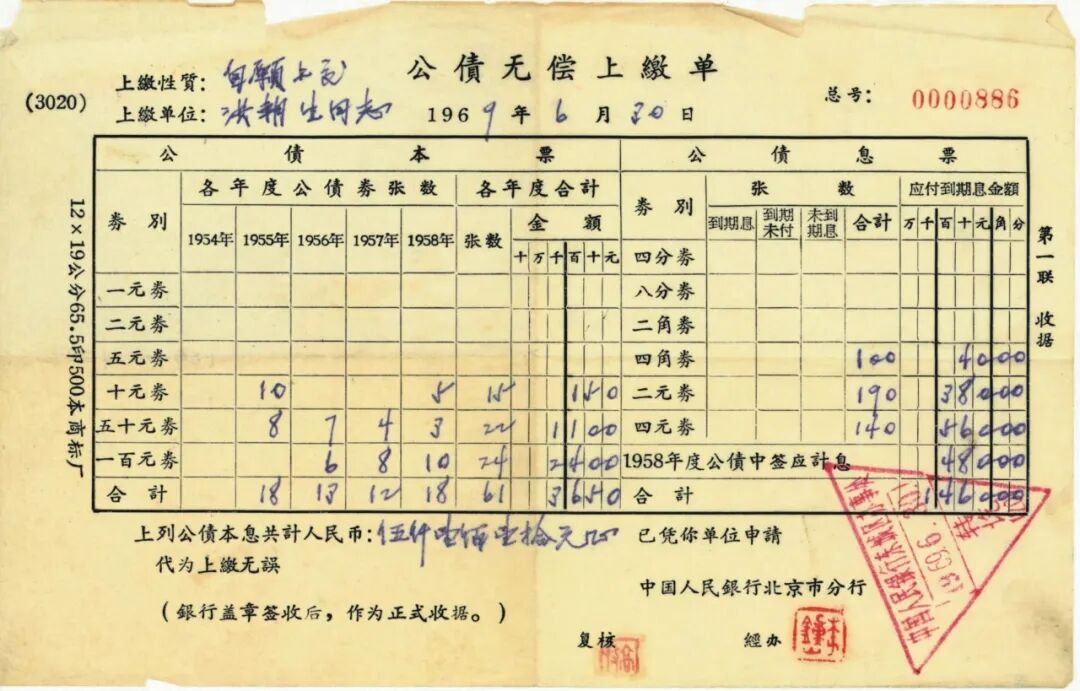 公債无偿上繳单
(3020)
上繳性質：自願上交
上繳单位：洪朔生同志 1969年6月30日
总号：0000886
公債本票 公債息票
券别 各年度公債券张数 各年度合計 券别 张数 应付到期息金額
1954年 1955年 1956年 1957年 1958年 张数 金額 到期息 到期未付 未到期息 合計 万千百十元角分
十万千百十元 四分券
一元券 八分券
二元券 二角券
五元券 四角券 100 4000
十元券 10 5 15 150 二元券 190 38000
五十元券 8 7 4 3 22 1100 四元券 140 56000
一百元券 6 8 10 24 2400 1958年度公債中签应計息 48000
合計 18 13 12 18 61 3650 合計 146000
上列公債本息共計人民币：伍仟壹佰壹拾元正 已凭你单位申請
代为上繳无誤
中国人民銀行北京市分行
(銀行盖章签收后，作为正式收据。)
复核 經办
12×19公分65.5印500本 商标厂
第一联 收据